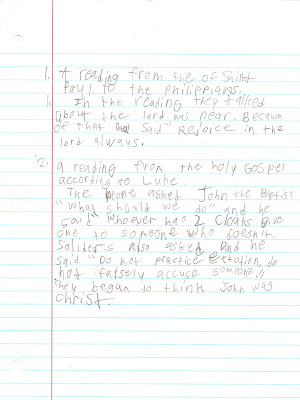 1. A reading from the of Saint
Paul to the Philippians.
1. In the reading they talked
about the lord was near. Because
of that said "Rejoice in the
lord always.
2. a reading from the holy GOSPel
according to Luke.
The people asked John the Baptist
"what should we do" and he
said "Whoever has 2 Cloaks give
one to someone who doesn't.
Soliders also asked and he
said "Do not practice extotion, do
not falsely accuse someone."
They began to think John was
Christ.